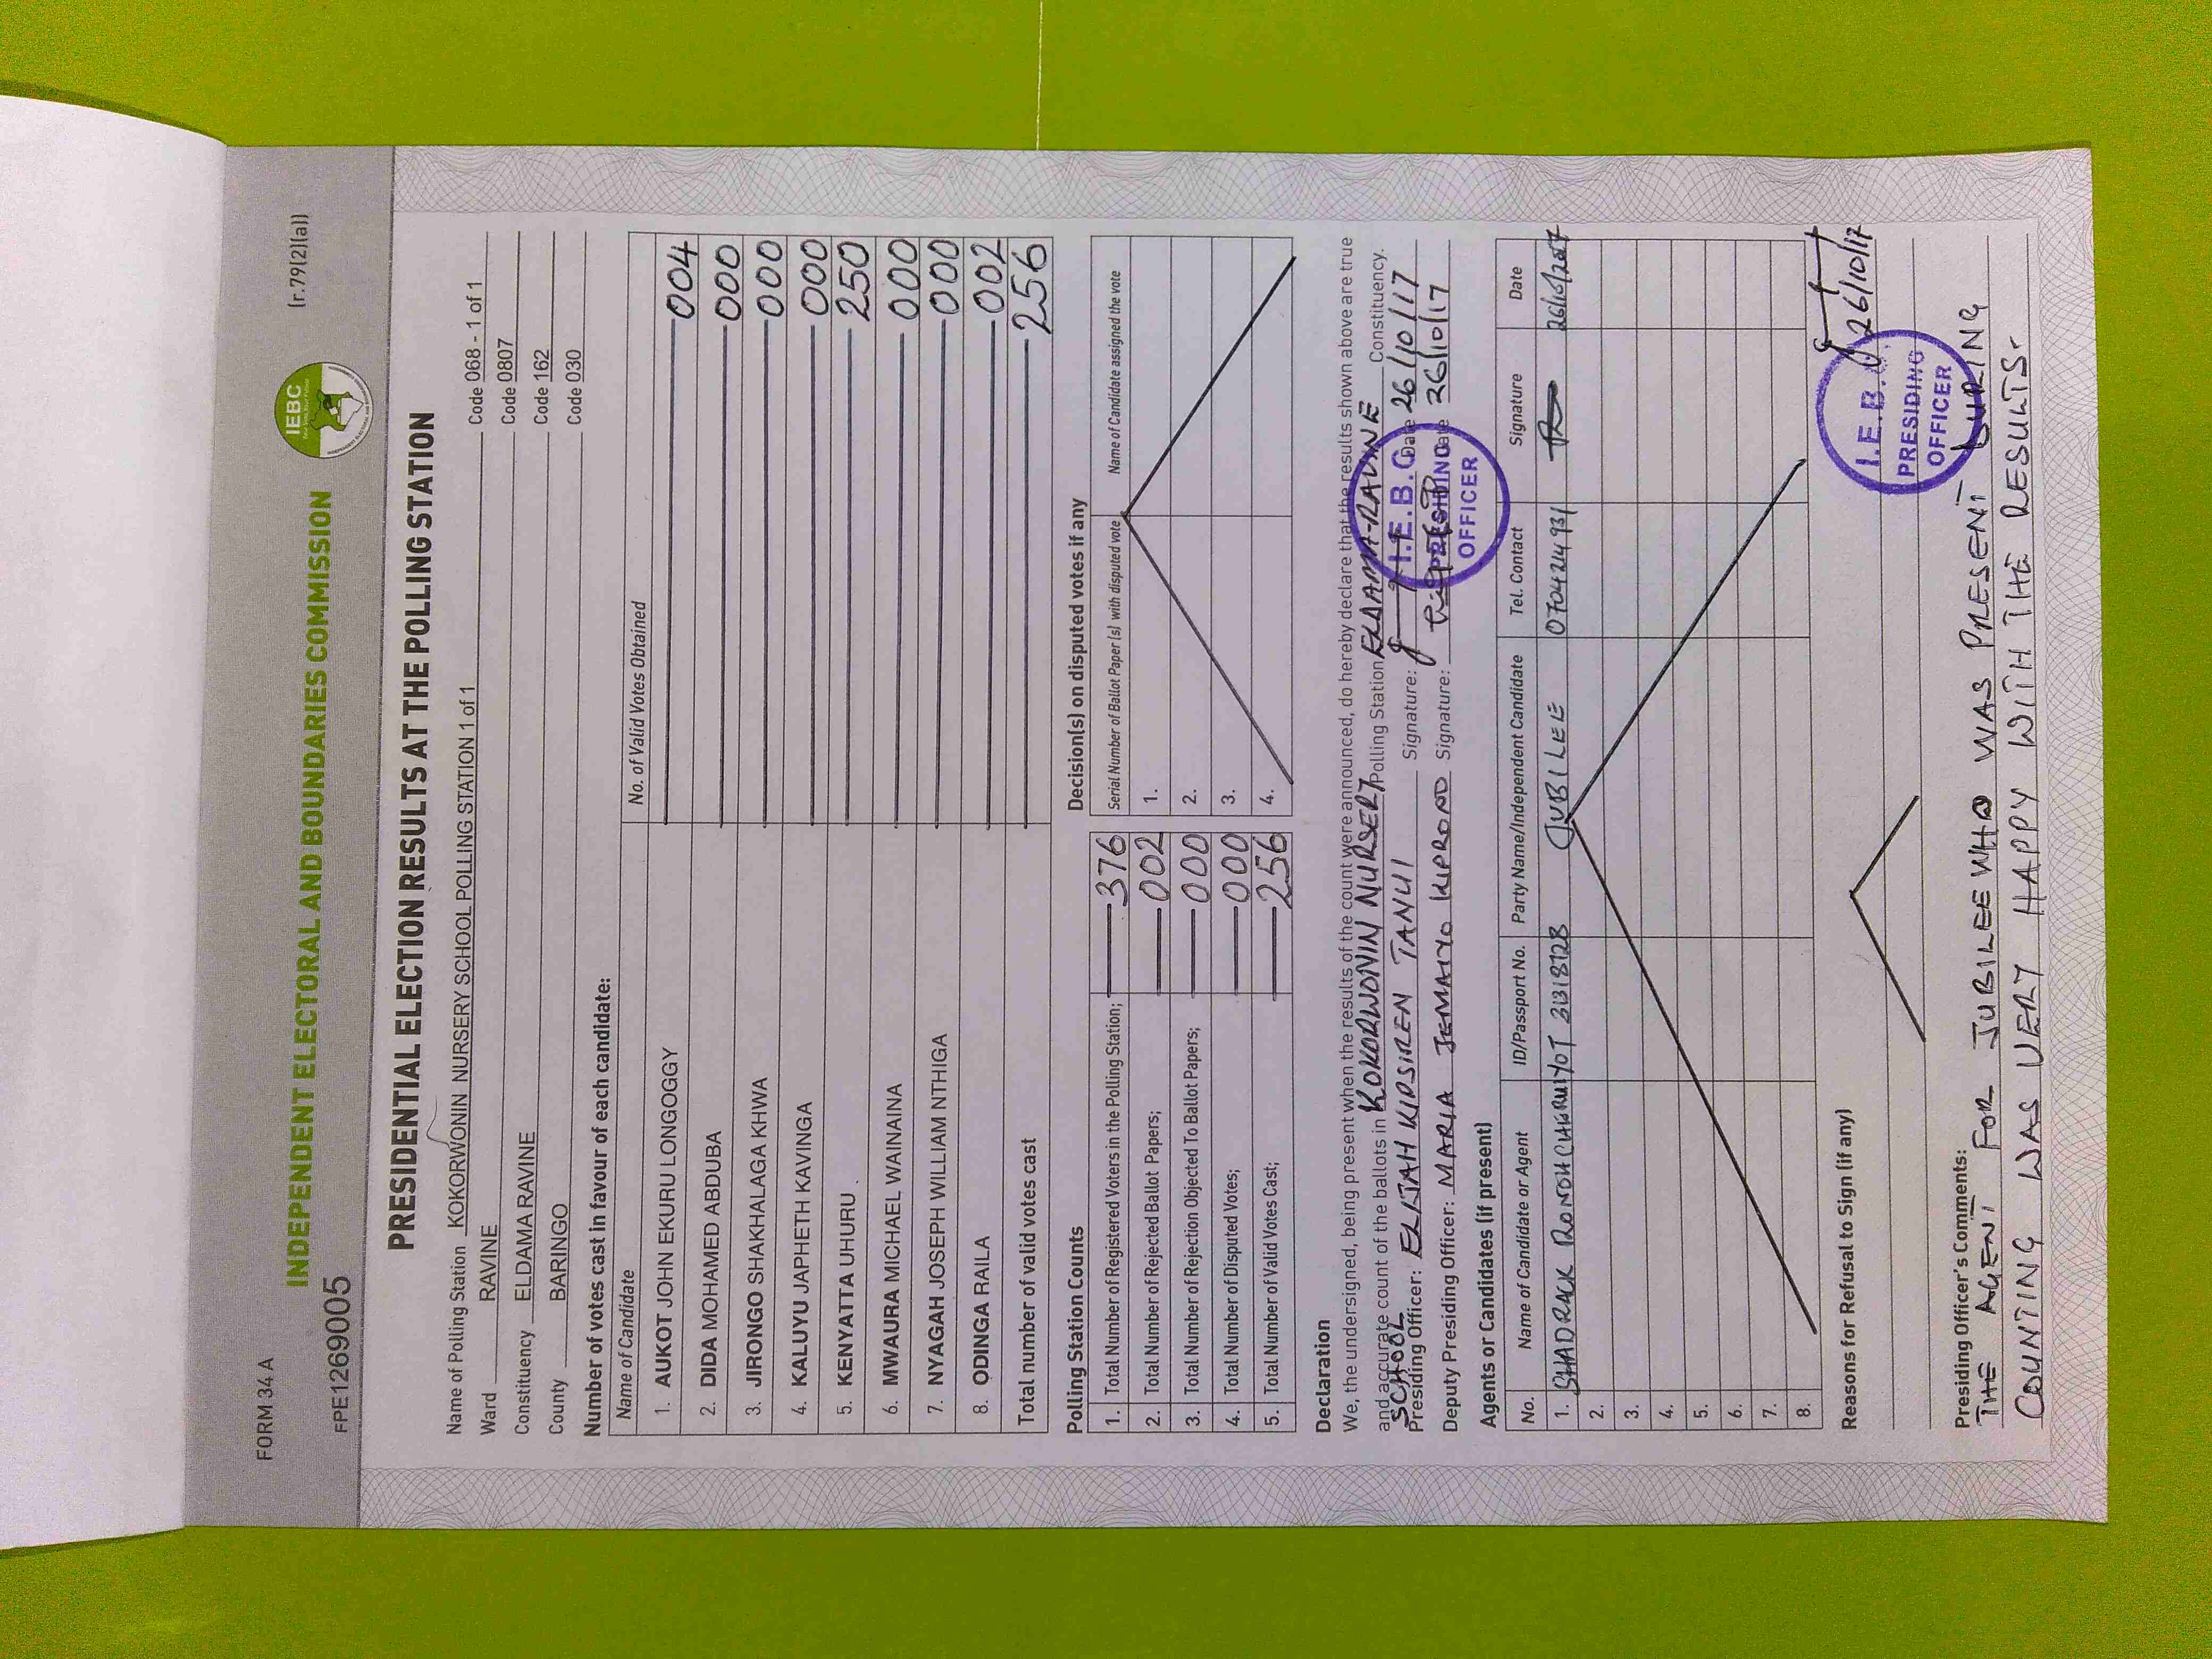 FORM 34 A
(r.79(2)(a))
IEBC
INDEPENDENT ELECTORAL AND BOUNDARIES COMMISSION
FPE1269005
PRESIDENTIAL ELECTION RESULTS AT THE POLLING STATION
Name of Polling Station KOKORWONIN NURSERY SCHOOL POLLING STATION 1 of 1 Code 068 - 1 of 1
Ward RAVINE Code 0807
Constituency ELDAMA RAVINE Code 162
County BARINGO Code 030
Number of votes cast in favour of each candidate:
Name of Candidate No. of Valid Votes Obtained
1. AUKOT JOHN EKURU LONGOGGY 004
2. DIDA MOHAMED ABDUBA 000
3. JIRONGO SHAKHALAGA KHWA 000
4. KALUYU JAPHETH KAVINGA 000
5. KENYATTA UHURU 250
6. MWAURA MICHAEL WAINAINA 000
7. NYAGAH JOSEPH WILLIAM NTHIGA 000
8. ODINGA RAILA 002
Total number of valid votes cast 256
Polling Station Counts
1. Total Number of Registered Voters in the Polling Station; 376
2. Total Number of Rejected Ballot Papers; 002
3. Total Number of Rejection Objected To Ballot Papers; 000
4. Total Number of Disputed Votes; 000
5. Total Number of Valid Votes Cast; 256
Decision(s) on disputed votes if any
Serial Number of Ballot Paper (s) with disputed vote Name of Candidate assigned the vote
1.
2.
3.
4.
Declaration
We, the undersigned, being present when the results of the count were announced, do hereby declare that the results shown above are true
and accurate count of the ballots in KOKORWONIN NURSERY Polling Station ELDAMA-RAVINE Constituency.
SCHOOL
Presiding Officer: ELIJAH KIPSIREN TANUI Signature: Date 26/10/17
Deputy Presiding Officer: MARIA JEMAIYO KIPRONO Signature: Date 26/10/17
I.E.B.C
PRESIDING
OFFICER
Agents or Candidates (if present)
No. Name of Candidate or Agent ID/Passport No. Party Name/Independent Candidate Tel. Contact Signature Date
1. SHADRACK RONOH CHERUIYOT 31318728 JUBILEE 0704244931 26/10/2017
2.
3.
4.
5.
6.
7.
8.
Reasons for Refusal to Sign (if any)
26/10/17
I.E.B.C
PRESIDING
OFFICER
Presiding Officer's Comments:
THE AGENT FOR JUBILEE WHO WAS PRESENT DURING
COUNTING WAS VERY HAPPY WITH THE RESULTS.